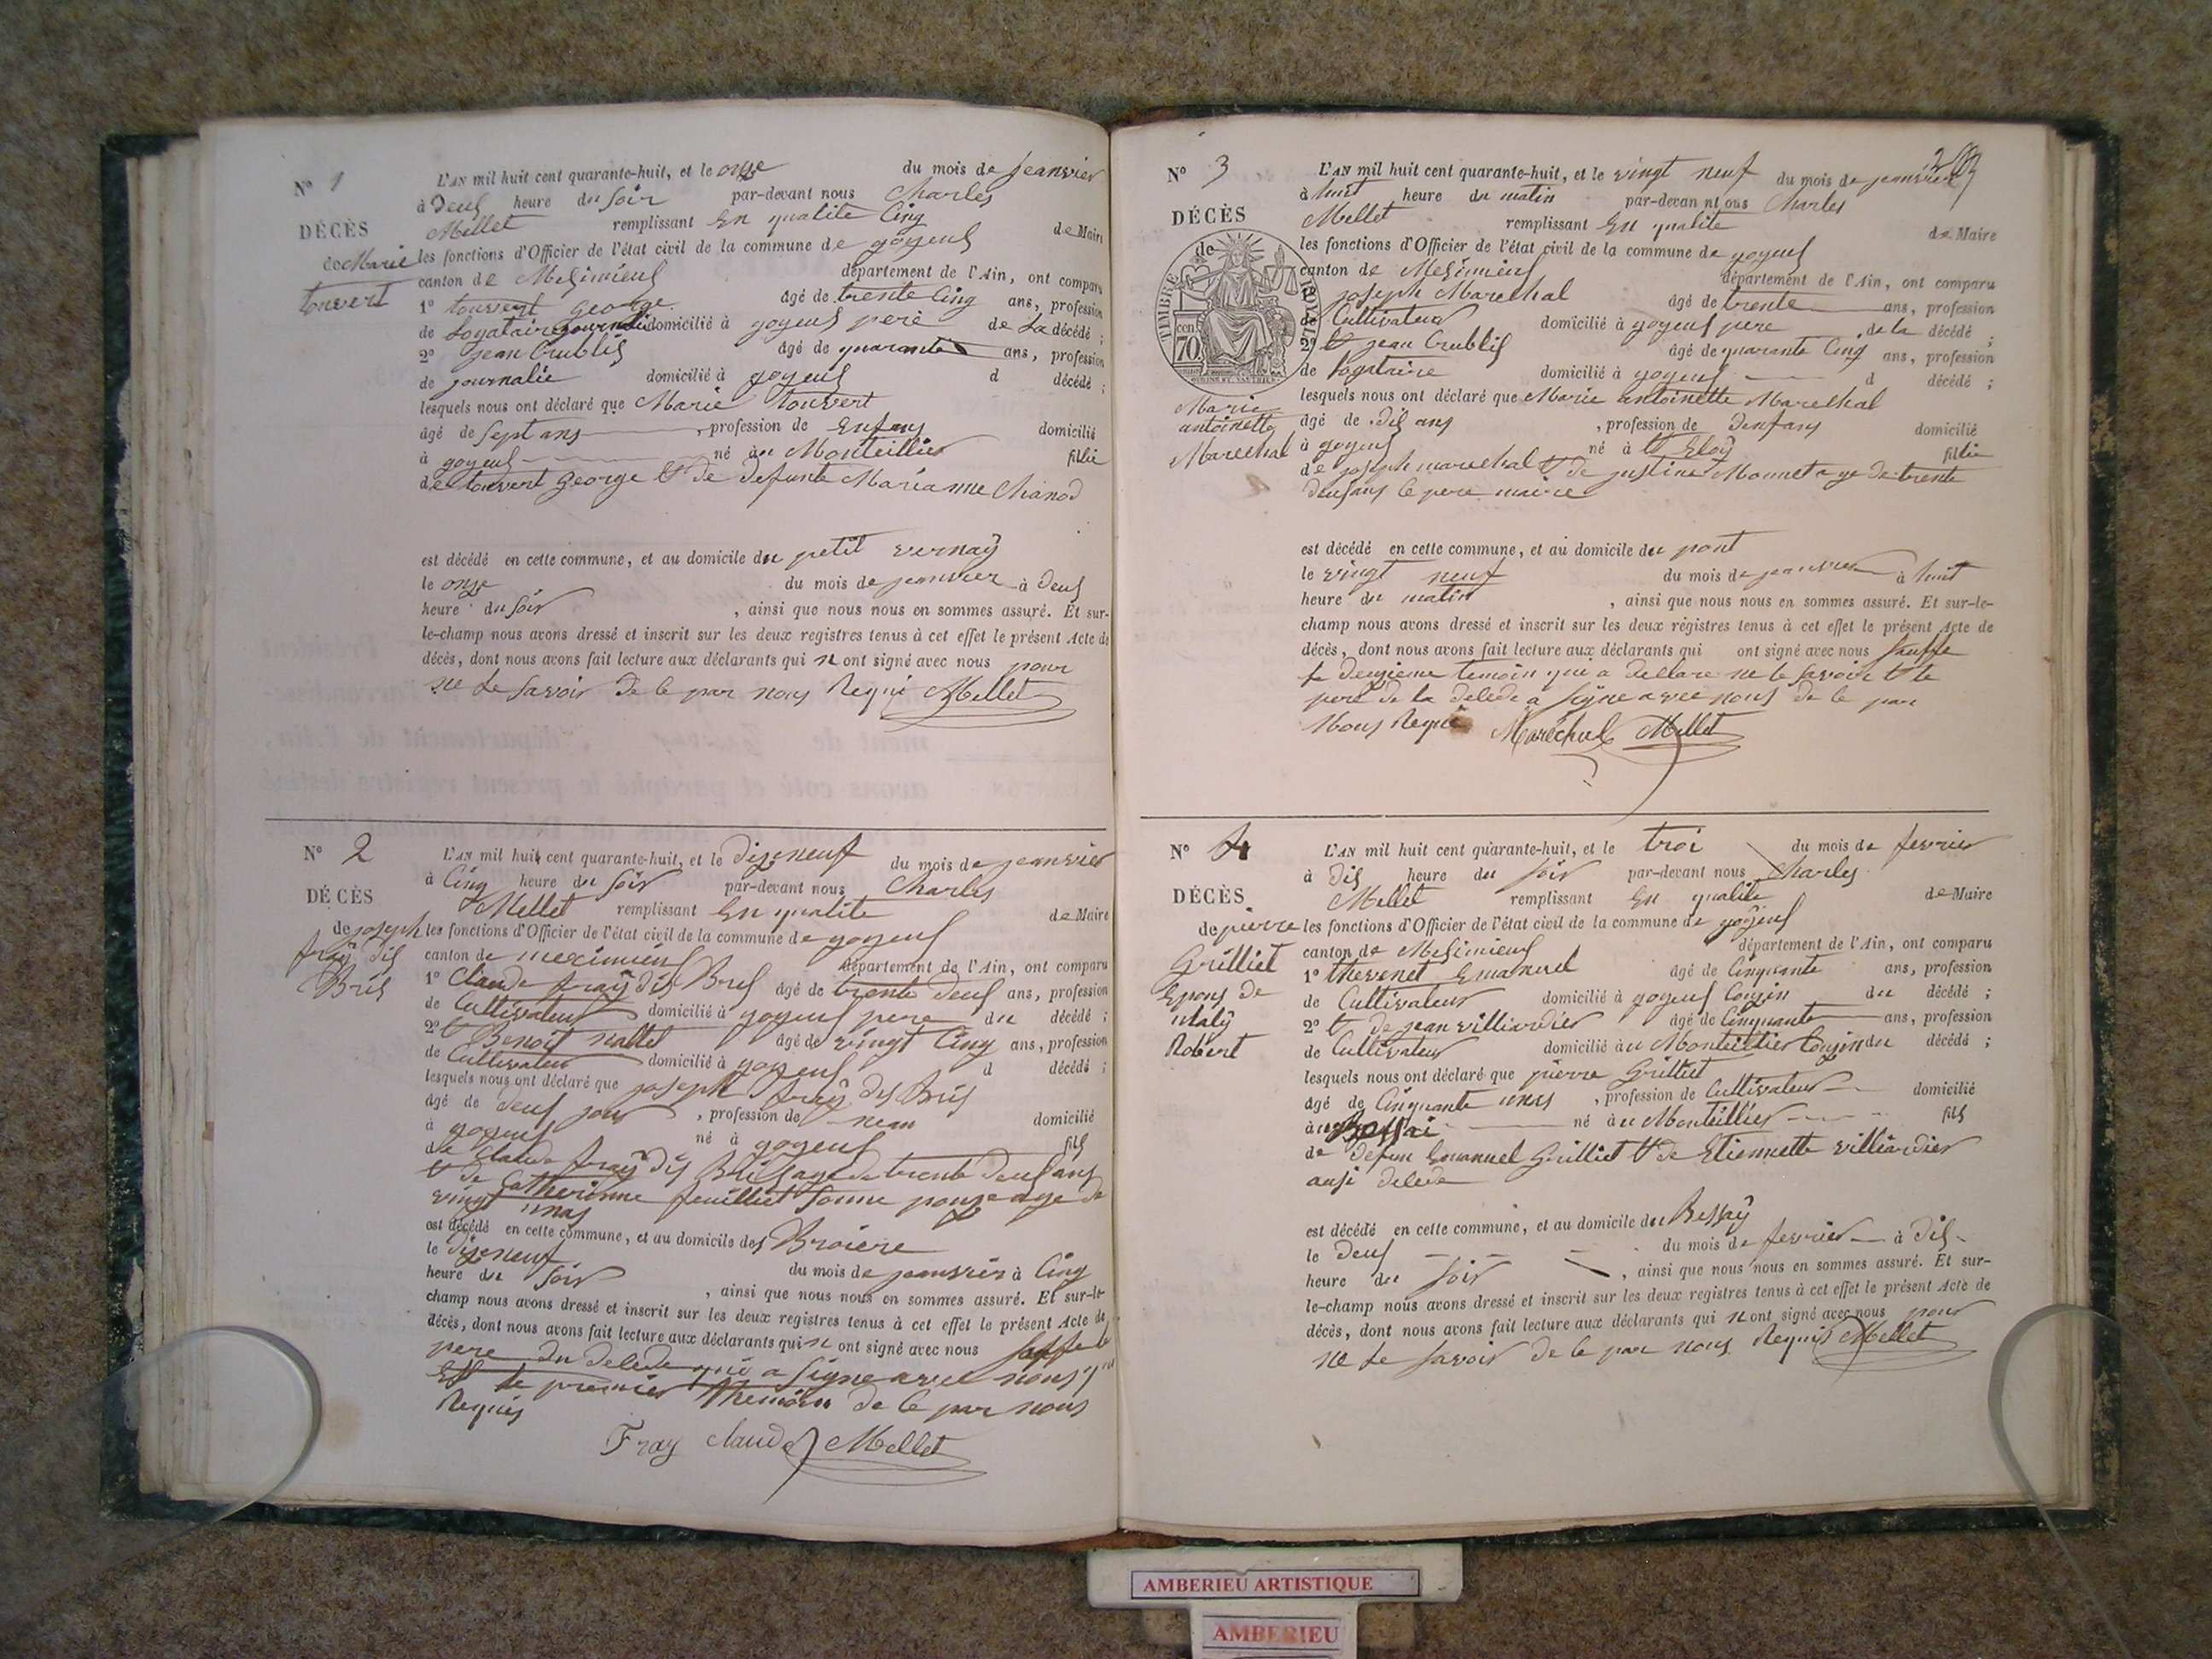 N° 1
DÉCÈS
de Marie
touvert
L'AN mil huit cent quarante-huit, et le onze du mois de jeanvier
à deus heure du soir par-devant nous Charles
Mellet remplissant En qualite de Maire
les fonctions d'Officier de l'état civil de la commune de
canton de Mesimieus département de l'Ain, ont comparu
1° touvert George âgé de trente Cinq ans, profession
de domicilié à père de La décédé ;
2° jean Crublis âgé de quarante ans, profession
de journalie domicilié à d décédé ;
lesquels nous ont déclaré que Marie touvert
âgé de Sept ans , profession de Enfans domicilié
à né au Monteillier fillie
de touvert George et de defunte Marianne Chanod
est décédé en cette commune, et au domicile du petit vernaÿ
le onze du mois de jeanvier à deus
heure du soir , ainsi que nous nous en sommes assuré. Et sur-
le-champ nous avons dressé et inscrit sur les deux registres tenus à cet effet le présent Acte de
décès, dont nous avons fait lecture aux déclarants qui n ont signé avec nous pour
ne Le savoir de ce par nous Requi Mellet
N° 2
DÉCÈS
de joseph
fraÿ dis
Bris
L'AN mil huit cent quarante-huit, et le dizeneuf du mois de jeanvier
à Cinq heure du soir par-devant nous Charles
Mellet remplissant En qualite de Maire
les fonctions d'Officier de l'état civil de la commune de
canton de meximieus département de l'Ain, ont comparu
1° Claude fraÿ dis Bris âgé de trente deus ans, profession
de Cultivateur domicilié à pere du décédé ;
2° et Benoit mallet âgé de vingt Cinq ans, profession
de Cultivateur domicilié à d décédé ;
lesquels nous ont déclaré que joseph fraÿ dis Bris
âgé de deus jour , profession de domicilié
à né à fils
de Claude fraÿ dis Bris age de trente deus ans
et de Catherinne feuilliet age de
vingt
est décédé en cette commune, et au domicile des Broiere
le dizeneuf du mois de jeanvier à Cinq
heure du soir , ainsi que nous nous en sommes assuré. Et sur-le-
champ nous avons dressé et inscrit sur les deux registres tenus à cet effet le présent Acte de
décès, dont nous avons fait lecture aux déclarants qui n ont signé avec nous sauffe le
pere du decede qui a signe avec nous
le premier de ce par nous
Requis
Fray claude Mellet
N° 3
DÉCÈS
de
TIMBRE ROYAL
cen
70
Marie
antoinette
Marechal
L'AN mil huit cent quarante-huit, et le vingt neuf du mois de jeanvier
à huit heure du matin par-devan nt ous Charles
Mellet remplissant En qualite de Maire
les fonctions d'Officier de l'état civil de la commune de
canton de Mesimieus département de l'Ain, ont comparu
1° joseph Marechal âgé de trente ans, profession
de Cultivateur domicilié à pere de la décédé ;
2° et jean Crublis âgé de quarante Cinq ans, profession
de domicilié à d décédé ;
lesquels nous ont déclaré que Marie antoinette Marechal
âgé de dis ans , profession de denfans domicilié
à né à St Eloÿ fillie
de joseph marechal et de justine Monnet age de trente
deus ans
est décédé en cette commune, et au domicile du pont
le vingt neuf du mois de jeanvier à huit
heure du matin , ainsi que nous nous en sommes assuré. Et sur-le-
champ nous avons dressé et inscrit sur les deux régistres tenus à cet effet le présent Acte de
décès, dont nous avons fait lecture aux déclarants qui ont signé avec nous sauffe
Le deuzieme temoin qui a declare ne le savoir et le
pere de la decede a signe avec nous de ce par
Nous Requi Maréchal Mellet
N° 4
DÉCÈS
de pierre
Grilliet
Epous de
Robert
L'AN mil huit cent quarante-huit, et le troi du mois de fevrier
à dis heure du soir par-devant nous Charles
Mellet remplissant En qualite de Maire
les fonctions d'Officier de l'état civil de la commune de
canton de Mesimieus département de l'Ain, ont comparu
1° thevenet Emanuel âgé de Cinquante ans, profession
de Cultivateur domicilié à Couzin du décédé ;
2° et de jean villiardier âgé de Cinquante ans, profession
de Cultivateur domicilié au Monteillier Couzin du décédé ;
lesquels nous ont déclaré que pierre Grilliet
âgé de Cinquante , profession de Cultivateur domicilié
à né au Monteillier fils
de defun Emanuel Grilliet et de Etiennette villiardier
ausi decede
est décédé en cette commune, et au domicile du Bessaÿ
le deus du mois de fevrier à dis
heure du soir , ainsi que nous nous en sommes assuré. Et sur-
le-champ nous avons dressé et inscrit sur les deux registres tenus à cet effet le présent Acte de
décès, dont nous avons fait lecture aux déclarants qui n ont signé avec nous pour
ne Le savoir de ce par nous Requis Mellet
AMBERIEU ARTISTIQUE
AMBERIEU